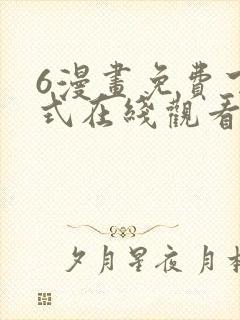 6漫畫免費下
式在綫觀看
夕月星夜月